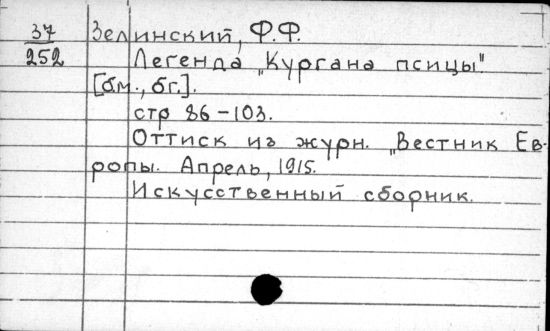 37 Зелинский, Ф.Ф.
252 Легенда „Кургана псицы"
[бм., бг.].
стр 86-103.
Оттиск из журн. „Вестник Ев-
ропы. Апрель, 1915.
Искусственный сборник.